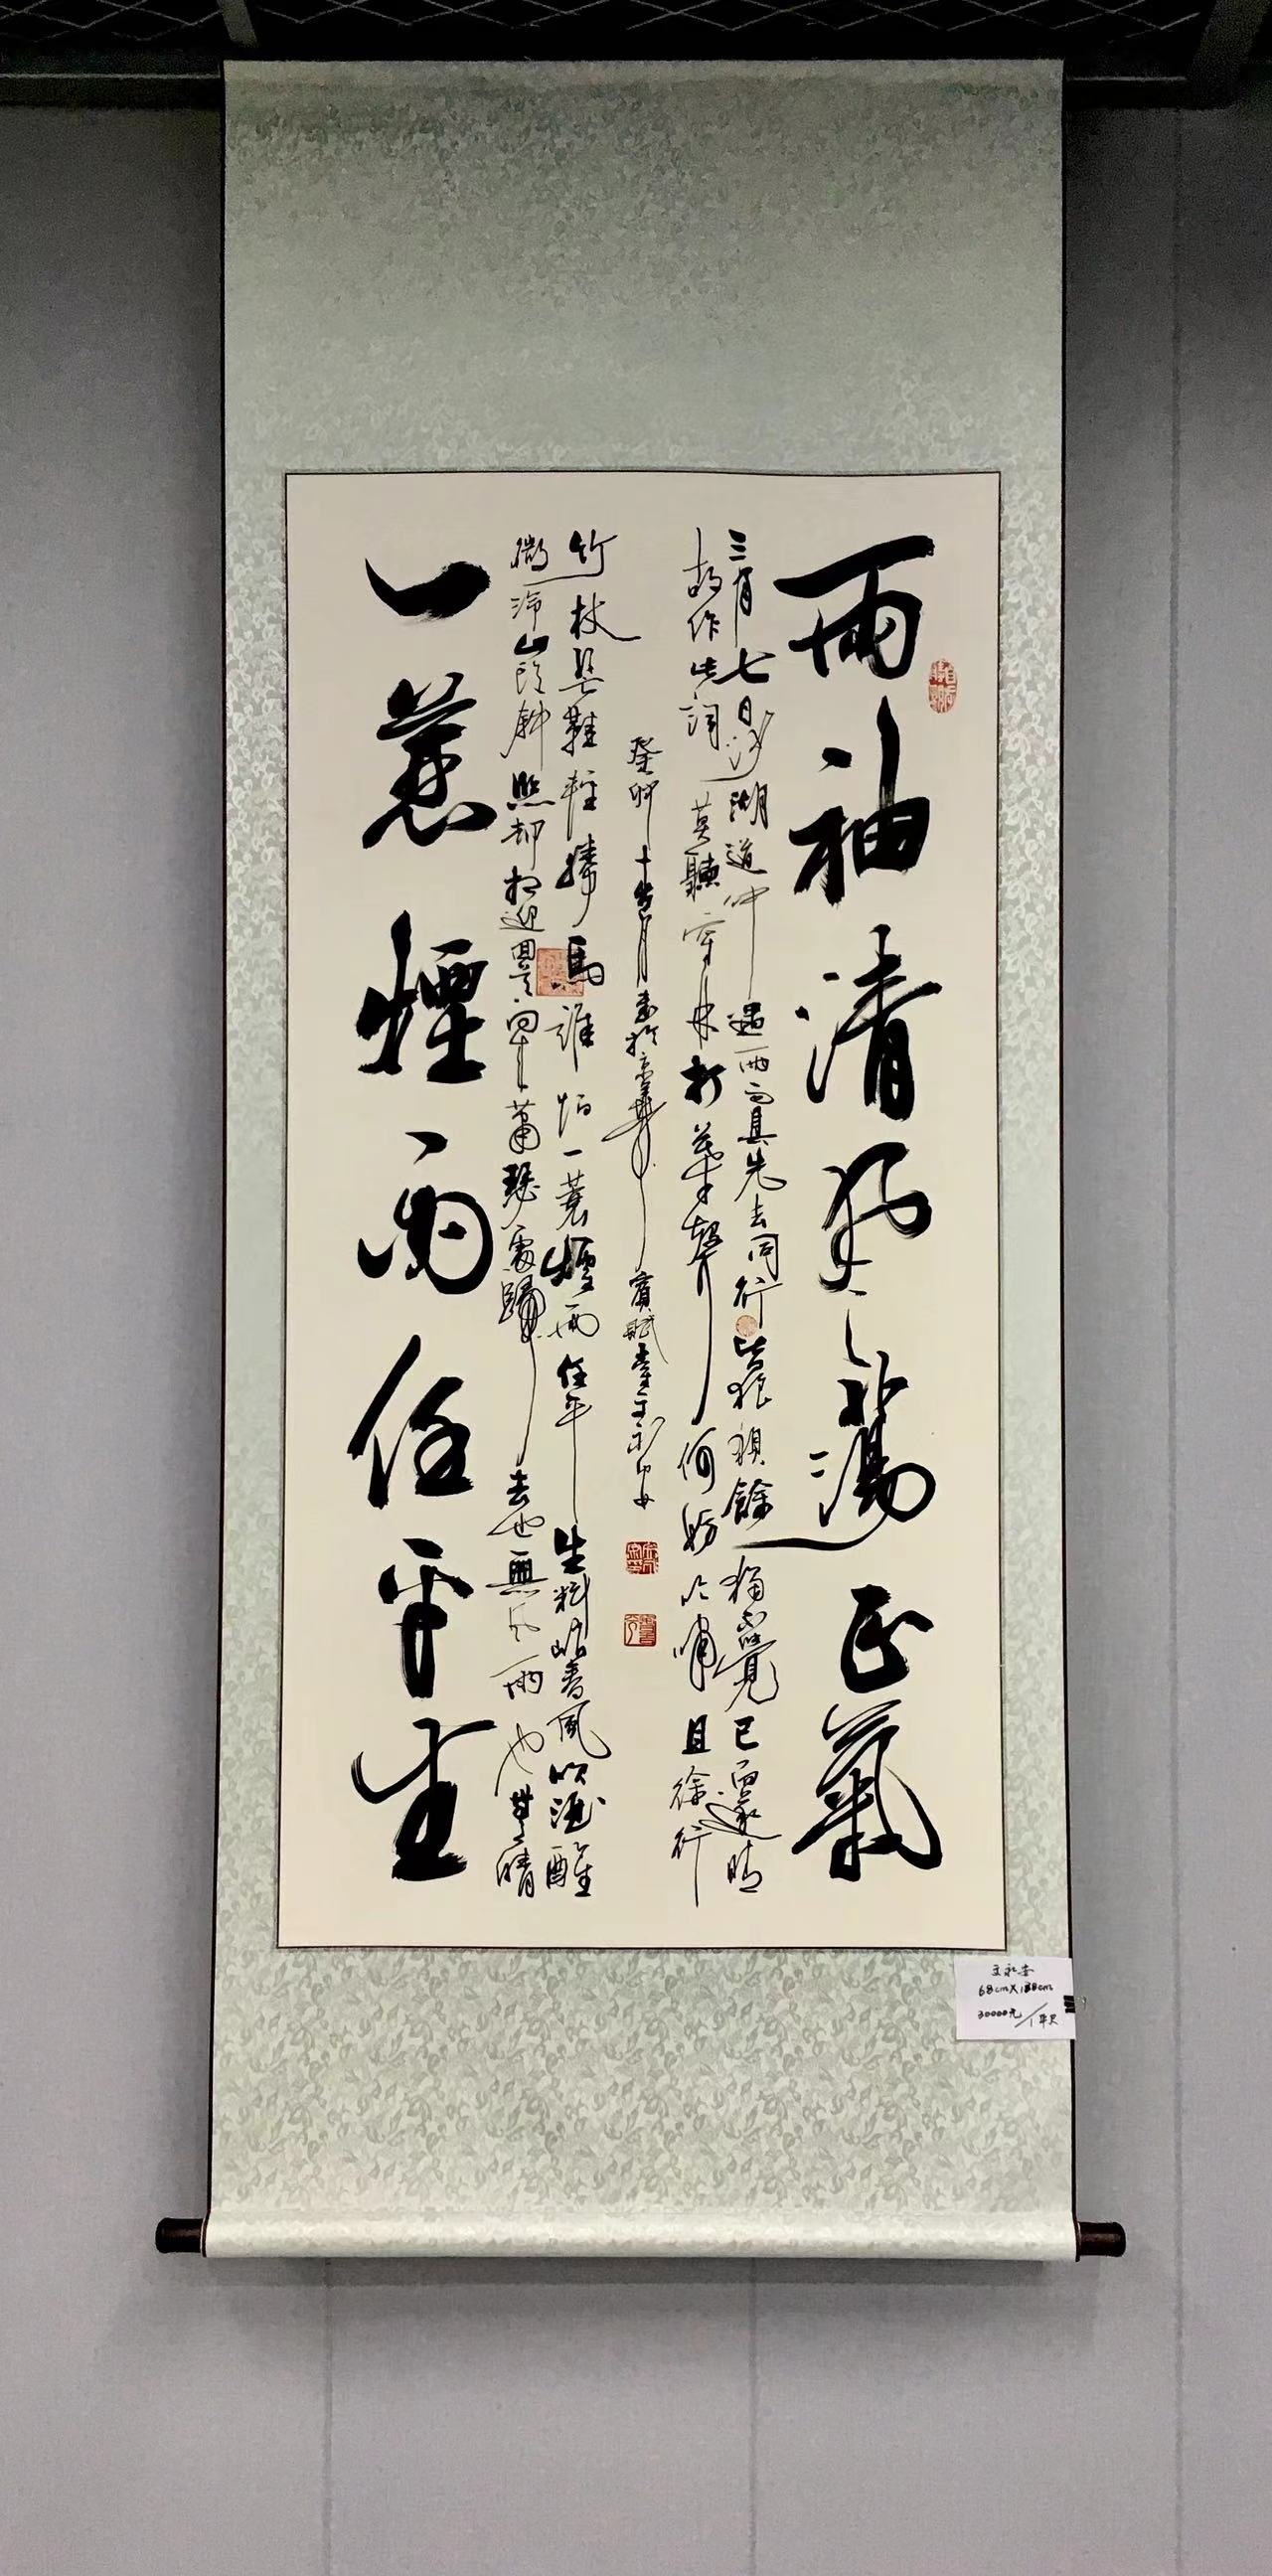 兩袖清風蕩正氣
三月七日沙湖道中遇雨雨具先去同行皆狼狽餘獨不覺已而遂晴
故作此詞莫聽穿林打葉聲何妨吟嘯且徐行
癸卯月書於京華賓賦堂主永安
竹杖芒鞋輕勝馬誰怕一蓑煙雨任平生料峭春風吹酒醒
微冷山頭斜照却相迎回首向來蕭瑟處歸去也無風雨也無晴
一蓑煙雨任平生
永安
68cm×138cm
30000元/1平尺